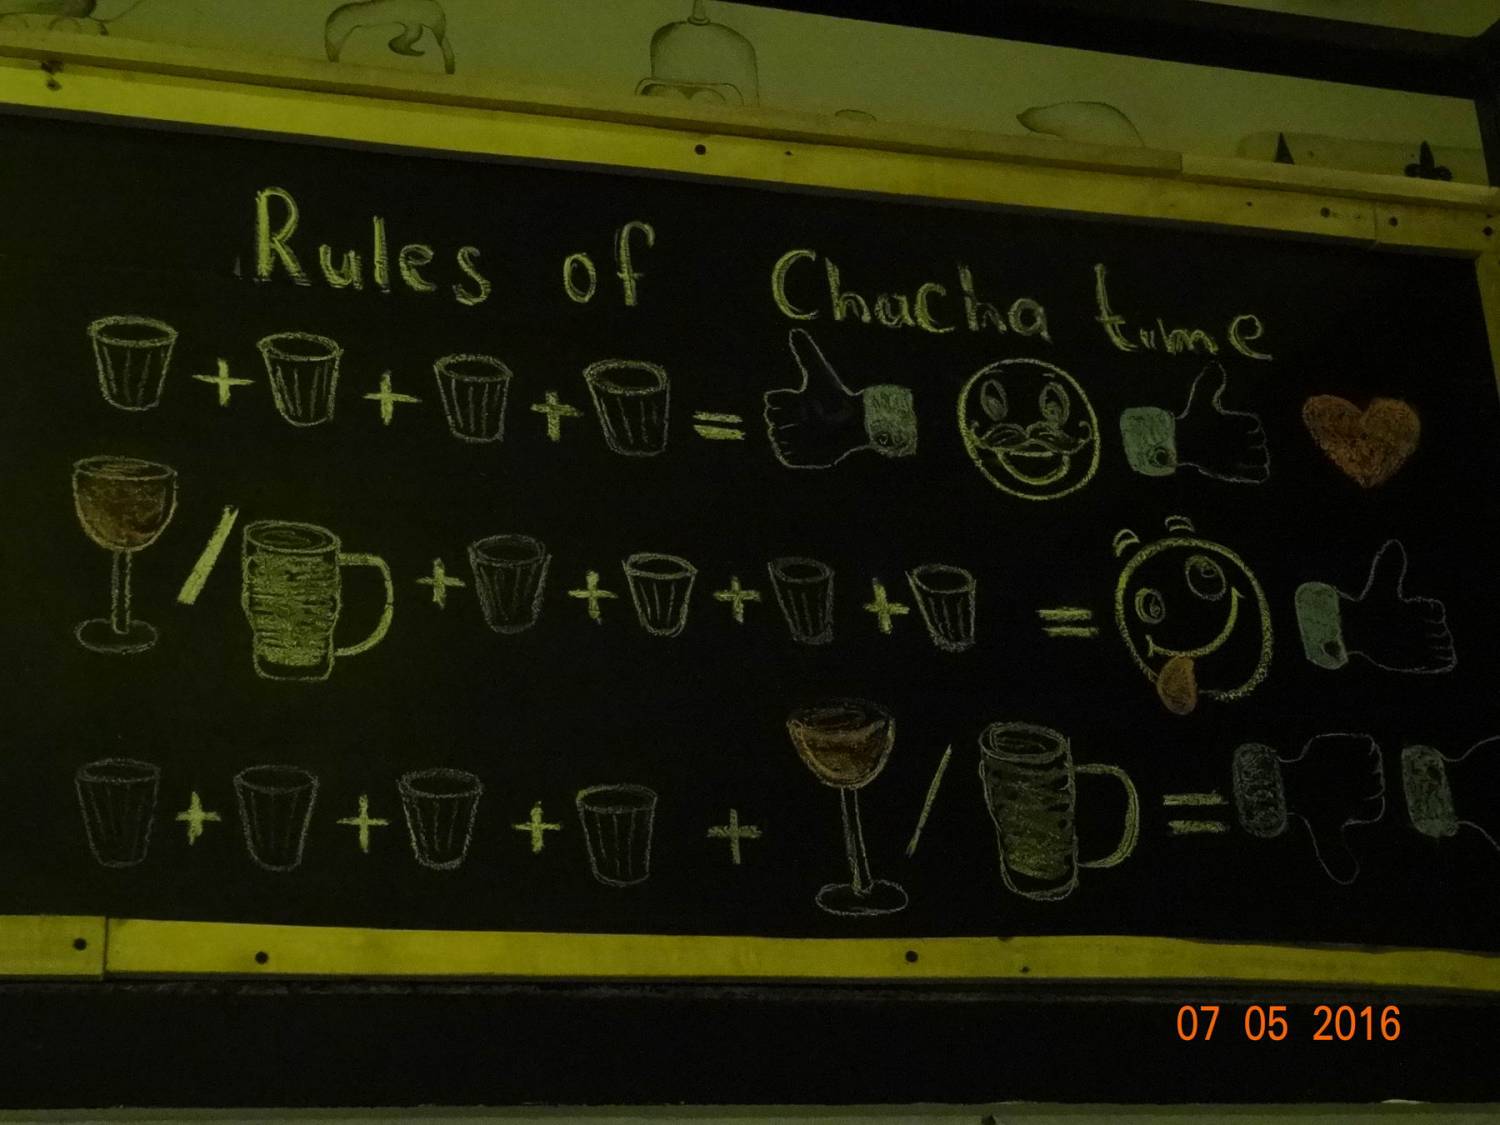 Rules of Chacha time
+ + + =
/ + + + + =
+ + + + / =
07 05 2016